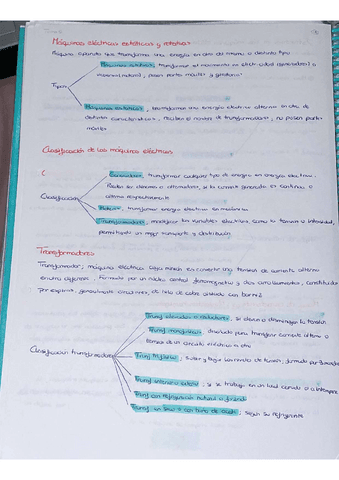 Máquinas eléctricas estáticas y rotativas
Máquinas rotativas, transforman el movimiento en electricidad (generadores) o
Tipos
Máquinas estáticas, transforman una energía eléctrica alterna en otra de
distintas características, reciben el nombre de transformadores, no poseen partes
móviles
Clasificación de las máquinas eléctricas
C
Generadores, transforman cualquier tipo de energía en energía eléctrica.
Pueden ser dinamos o alternadores, si la corriente generada es continua o
alterna respectivamente
Clasificación
Motores, transforman energía eléctrica en mecánica
Transformadores, modifican las variables eléctricas, como la tensión o intensidad,
permitiendo un mejor transporte y distribución
Transformadores
Transformador, máquina eléctrica cuya misión es convertir una tensión de corriente alterna
en otra diferente. Formado por un núcleo central ferromagnético y dos arrollamientos, constituidos
por espiras, generalmente circulares, de hilo de cobre aislado con barniz
Transf elevadores o reductores, si elevan o disminuyen la tensión
Transf monofásicos, diseñado para transferir corriente alterna o
tensión de un circuito eléctrico a otro
Clasificación transformadores
Transf trifásicos,
Transf interior o exterior, si se trabaja en un local cerrado o a intemperie
Transf con refrigeración natural o forzada
Transf en seco o con baño de aceite, según su refrigerante